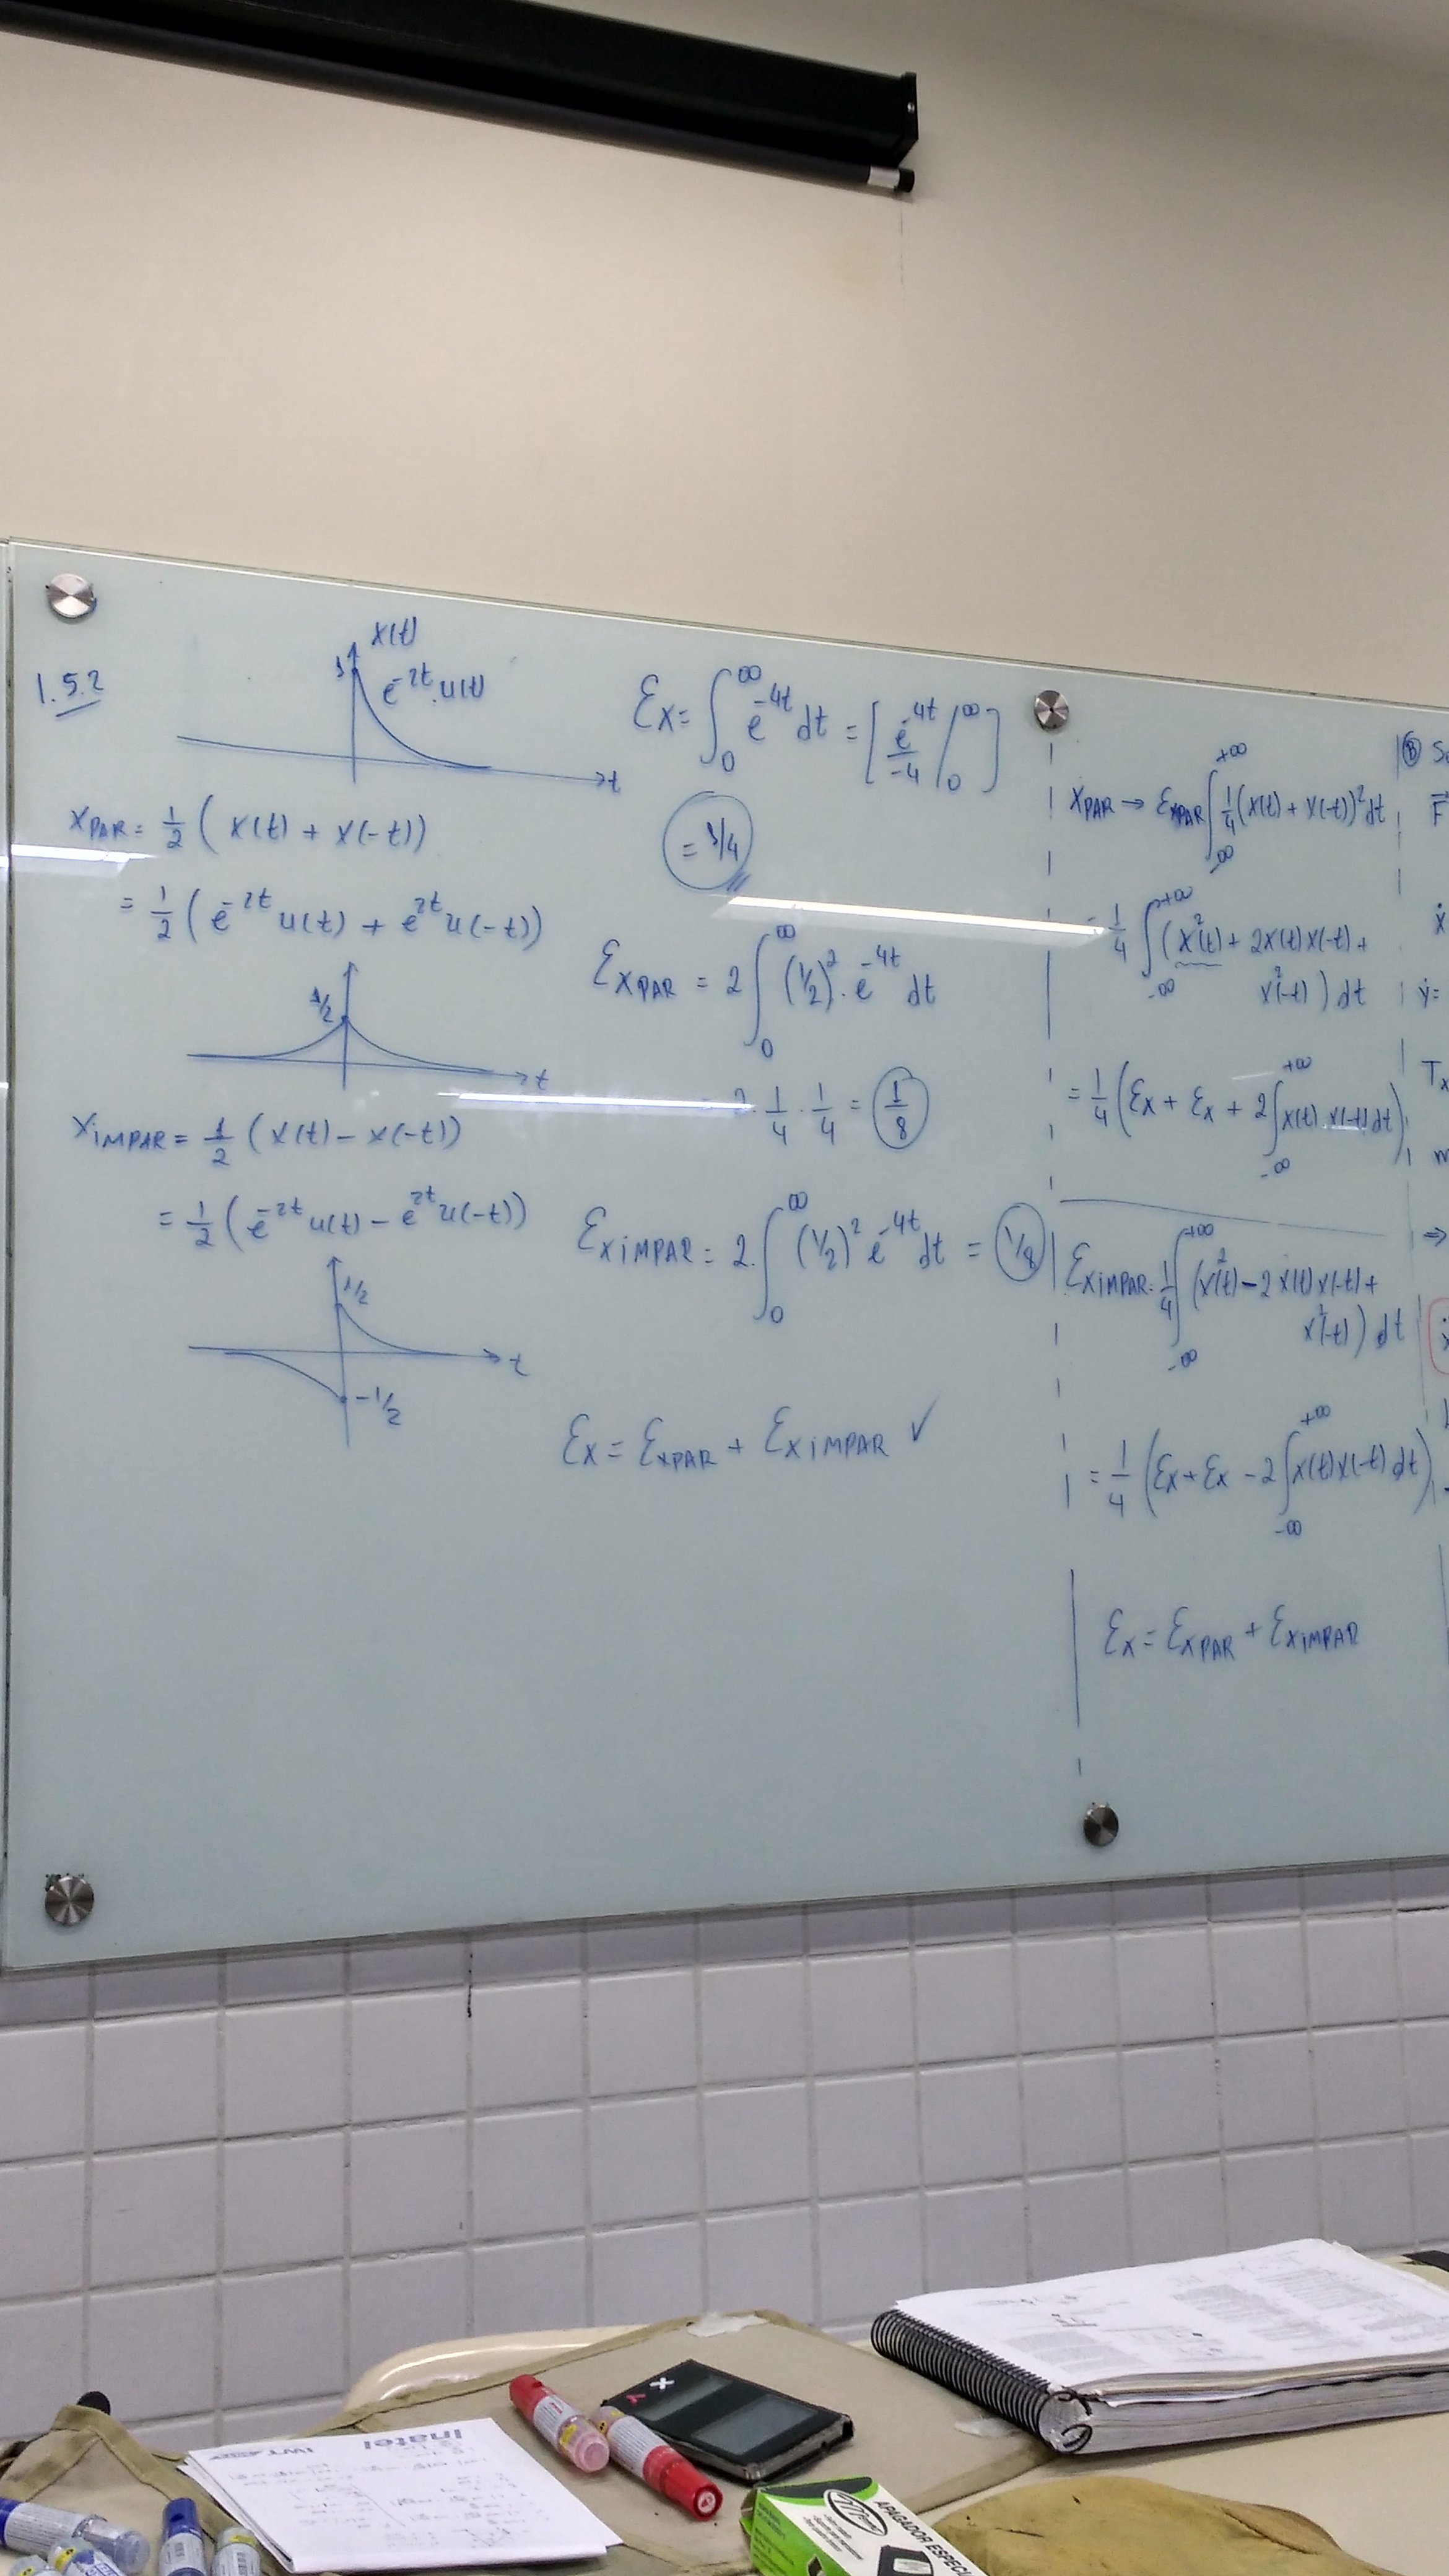 1.5.2
x(t)
1
e^-2t.u(t)
t
x_PAR = 1/2 ( x(t) + x(-t))
= 1/2 ( e^-2t u(t) + e^2t u(-t))
1/2
t
x_IMPAR = 1/2 (x(t) - x(-t))
= 1/2 ( e^-2t u(t) - e^2t u(-t))
1/2
t
-1/2
Ex = ∫_0^∞ e^-4t dt = [ e^-4t/-4 |_0^∞ ]
= 1/4
E_xPAR = 2 ∫_0^∞ (1/2)^2 . e^-4t dt
= 2 . 1/4 . 1/4 = 1/8
E_xIMPAR = 2. ∫_0^∞ (1/2)^2 e^-4t dt = 1/8
Ex = E_xPAR + E_xIMPAR ✓
x_PAR → E_xPAR ∫_-∞^+∞ 1/4 (x(t) + x(-t))^2 dt
= 1/4 ∫_-∞^+∞ (x^2(t) + 2x(t)x(-t) +
x^2(-t) ) dt
= 1/4 ( Ex + Ex + 2 ∫_-∞^+∞ x(t) x(-t) dt )
E_xIMPAR = 1/4 ∫_-∞^+∞ (x^2(t) - 2 x(t) x(-t) +
x^2(-t) ) dt
= 1/4 ( Ex + Ex - 2 ∫_-∞^+∞ x(t)x(-t) dt )
Ex = E_xPAR + E_xIMPAR
B
F
ẋ
ẏ =
⇒
Inatel
APAGADOR ESPECI